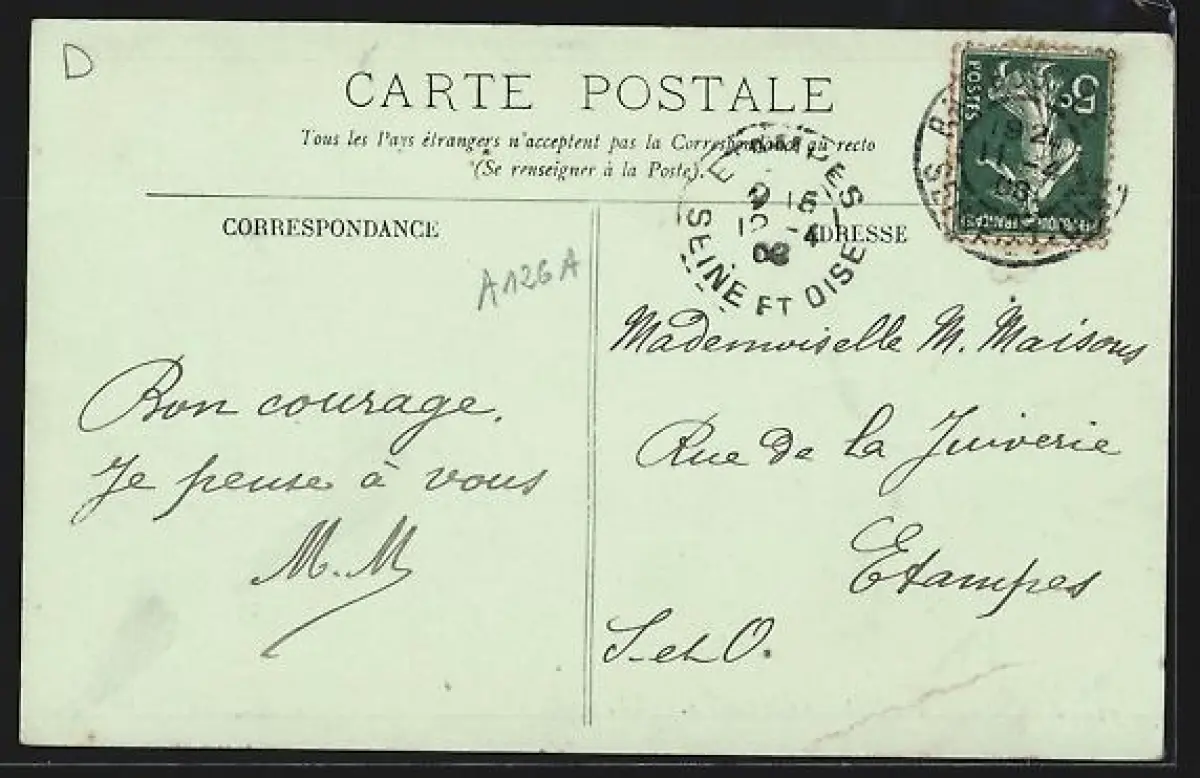 D
CARTE POSTALE
Tous les Pays étrangers n'acceptent pas la Correspondance au recto
(Se renseigner à la Poste).
CORRESPONDANCE
ADRESSE
A126A
ETAMPES
SEINE ET OISE
5c
POSTES
Bon courage.
Je pense à vous
M. M
Mademoiselle M. Maisons
Rue de la Juiverie
Etampes
S. et O.